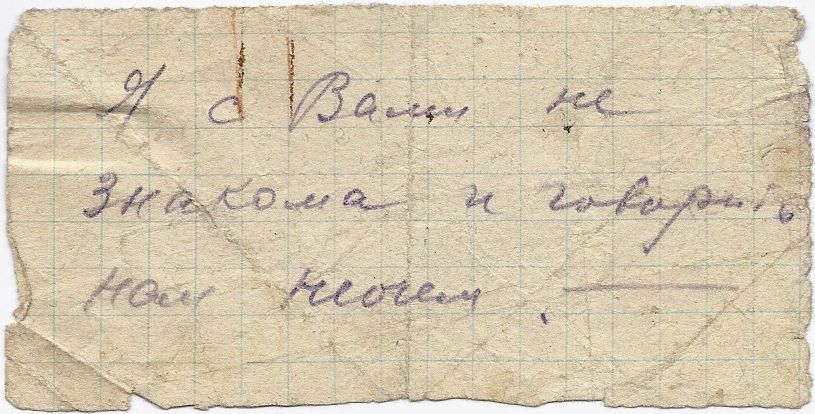 Я с Вами не
знакома и говорить
нам неочем. —